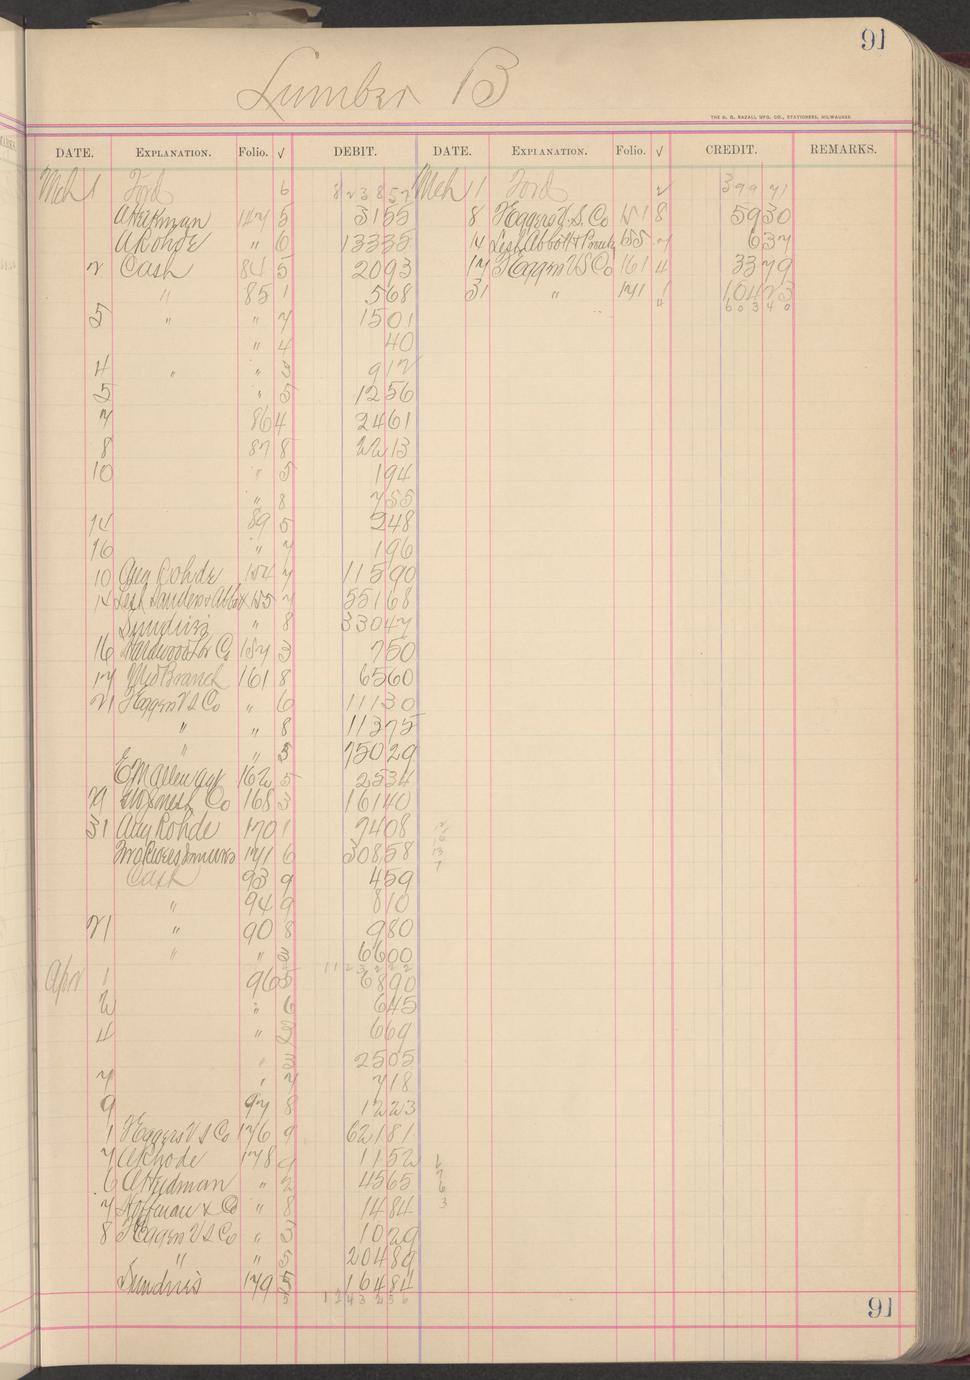 91
Lumber B
THE H. G. RAZALL MFG. CO., STATIONERS, MILWAUKEE
DATE. EXPLANATION. Folio. √ DEBIT. DATE. EXPLANATION. Folio. √ CREDIT. REMARKS.
Mch 1 Ford 6 823852 Mch 1 Ford 2 39971
147 5 3155 8 F Eggers V. S. Co 151 8 5930
A Rohde " 6 13335 14 Lesh Abbott & 155 7 637
2 Cash 84 5 2093 17 F Eggers V S Co 161 4 3379
" 85 1 568 31 " 171 1 10423
5 " " 7 1501 60340
" 4 40
4 " " 3 912
5 " 5 1256
7 86 4 2461
8 87 8 2213
10 " 5 194
" 8 755
14 89 5 248
16 " 7 196
10 Aug Rohde 154 7 11590
14 Lesh Sanders & Abbott 155 7 55168
Sundries " 8 33047
16 Hardwood Lbr Co 157 3 750
17 Med Branch 161 8 6560
21 F Eggers V S Co " 6 11130
" " 8 11375
" " 5 75029
E M Allen agt 162 5 2534
29 Co 168 3 16140
31 Aug Rohde 170 1 7408
171 6 30858
Cash 93 9 459
" 94 9 810
21 " 90 8 980
" " 3 6600
1123222
Apr 1 96 5 6890
2 " 6 645
4 " 3 669
" 3 2505
7 " 7 718
9 97 8 1223
1 F Eggers V S Co 176 9 62181
7 A Rhode 178 9 1152
6 " 2 4565
7 Hoffman & Co " 8 1484
8 F Eggers V S Co " 3 1029
" " 5 20489
Sundries 179 5 16484
1243256
91